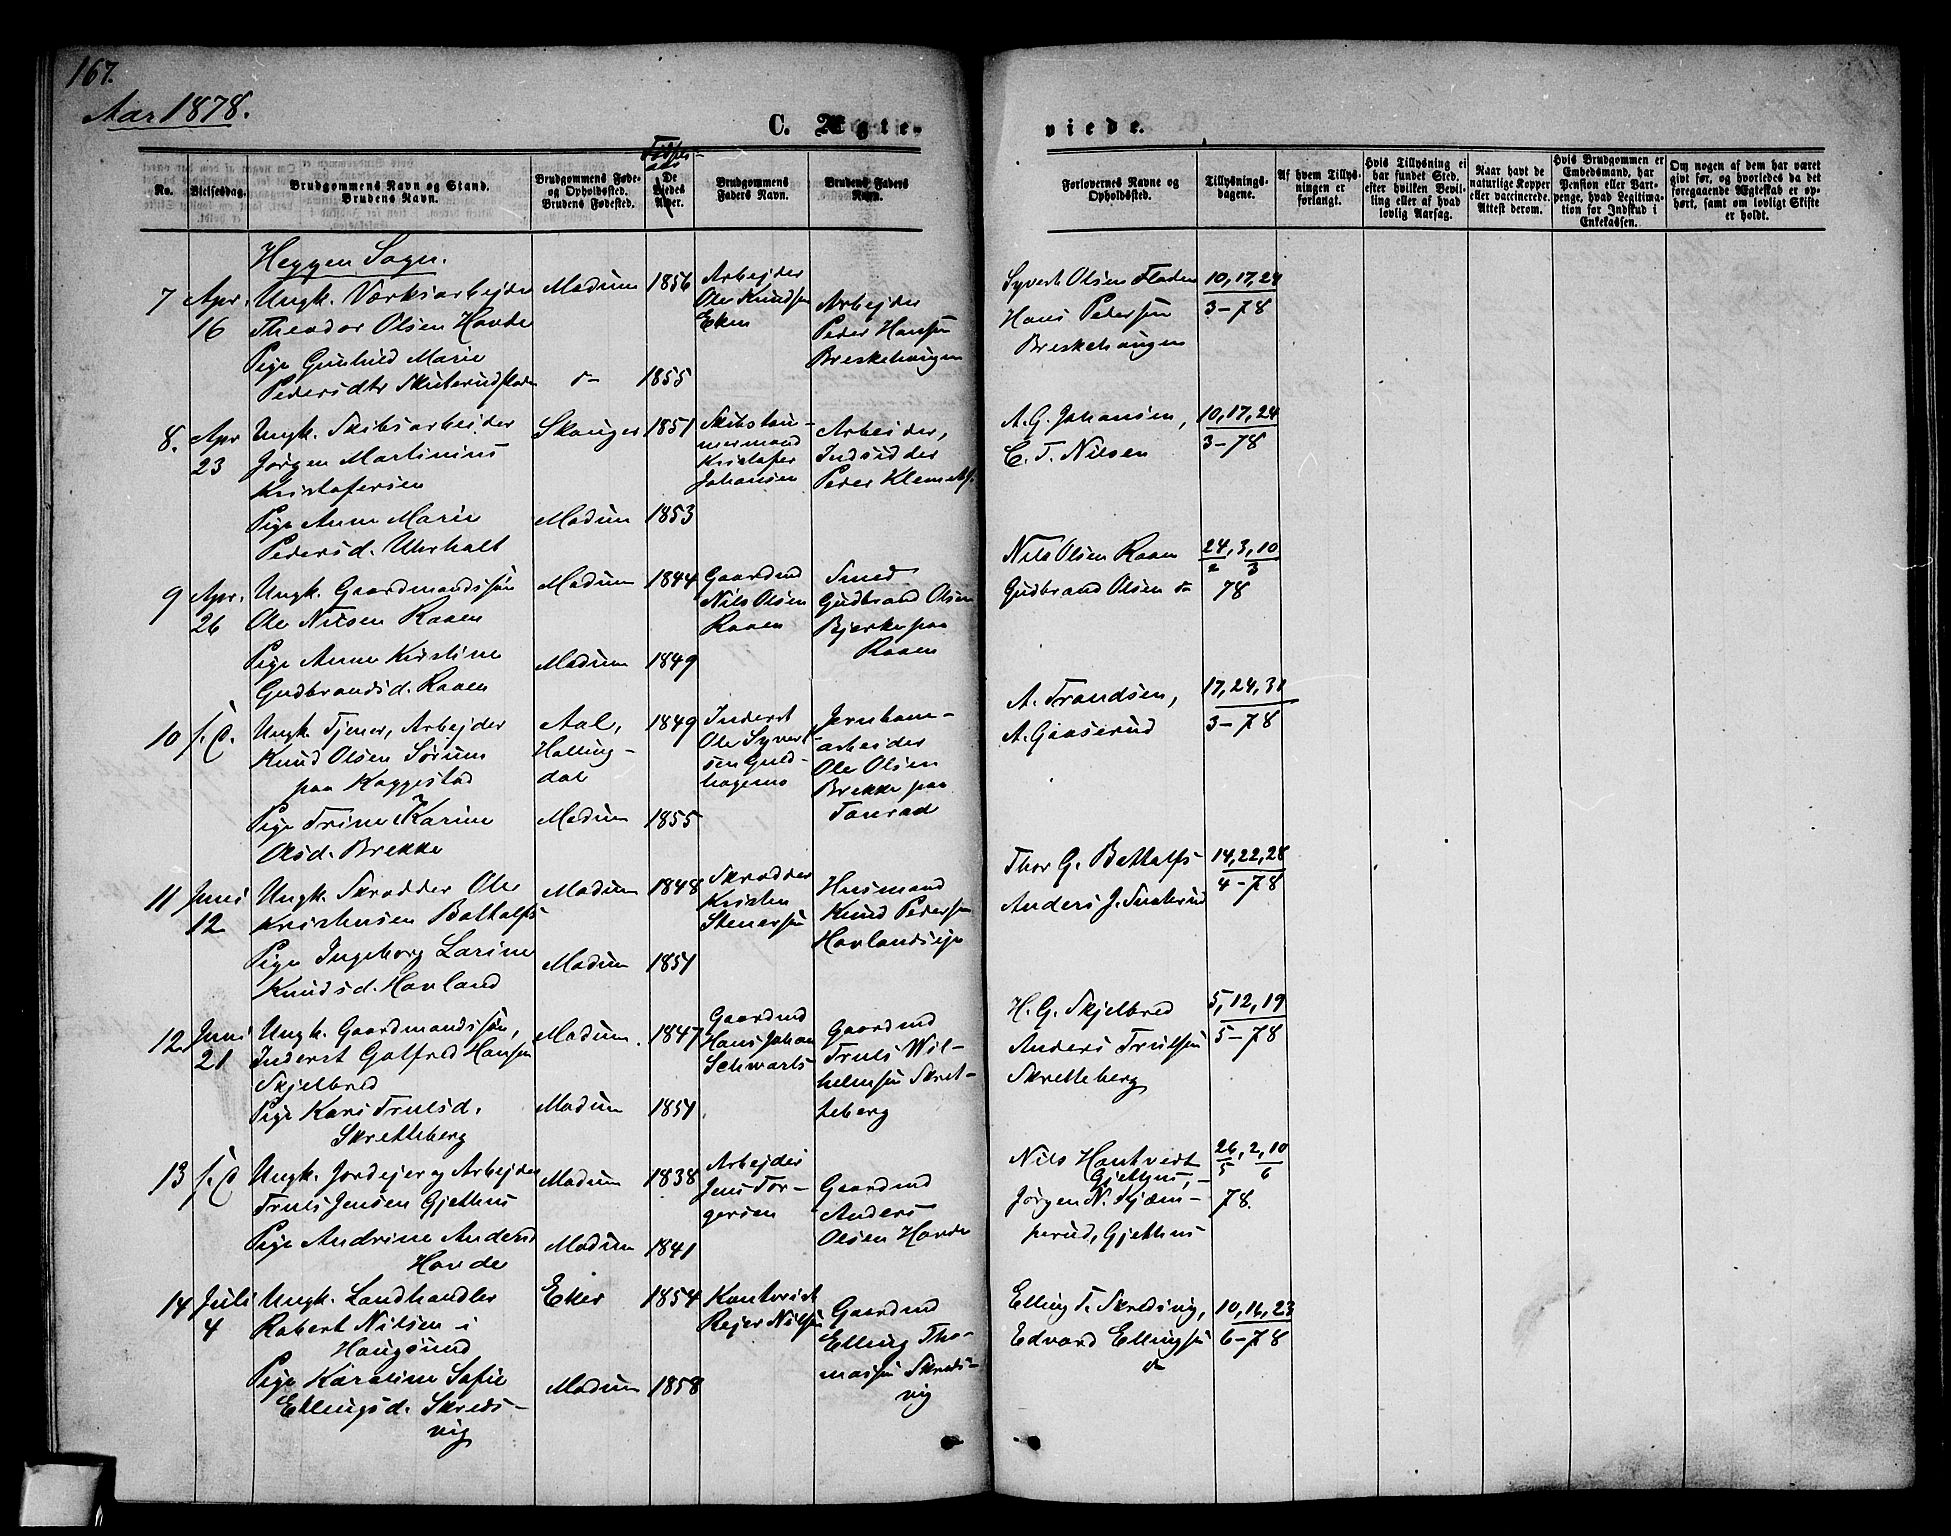 167.
Aar 1878.
C. Ægte-
viede.
No.
Vielsesdag.
Brudgommens Navn og Stand.
Brudens Navn.
Brudgommens Føde-
og Opholdssted.
Brudens Fødested.
De
Viedes
Alder.
Brudgommens
Faders Navn.
Brudens Faders
Navn.
Forlovernes Navne og
Opholdssted.
Tillysnings-
dagene.
Af hvem Tillys-
ningen er
forlangt.
Hvis Tillysning ei
har fundet Sted,
efter hvilken Bevil-
ling eller af hvad
lovlig Aarsag.
Naar havt de
naturlige Kopper
eller vaccinerede.
Attest derom.
Hvis Brudgommen er
Embedsmand, har
Pension eller Vart-
penge, hvad Legitima-
tion for Indskud i
Enkekassen.
Om nogen af dem har været
gift før, og hvorledes da det
foregaaende Ægteskab er op-
hørt, samt om lovligt Skifte
er holdt.
Heggen Sogn.
7
Apr.
16
Ungk. Værksarbejder
Theodor Olsen Hovde
Pige Gunhild Marie
Pedersdtr Skuterudfladen
Modum
1856
1855
Arbejder
Ole Knudsen
Eken
Arbejder
Peder Hansen
Breskehaugen
Syvert Olsen Floden
Hans Pedersen
Breskehaugen
10, 17, 24
3-78
8.
Apr
23
Ungk. Skibsarbeider
Jørgen Martinius
Kristofersen
Pige Anne Marie
Pedersd. Uhrholt
Skouger
Modum
1851
1853
Skibstøm-
mermand
Kristofer
Johansen
Arbeider,
Indsidder
Peder Klemets.
A. G. Johansen,
C. T. Nilsen
10, 17, 24
3-78
9
Apr.
26
Ungk. Gaardmandssøn
Ole Nilsen Raaen
Pige Anne Kristine
Gudbrandsd. Raaen
Modum
Modum
1844
1849
Gaardmd
Nils Olsen
Raaen
Smed
Gudbrand Olsen
Bjerke paa
Raaen
Nils Olsen Raaen
Gudbrand Olsen
24, 3, 10
2 3
78
10
s. D.
Ungk. Tjener, Arbejder
Knud Olsen Sørum
paa Kaggestad
Pige Trine Karine
Olsd. Brekke
Aal,
Halling-
dal
Modum
1849
1855
Inderst
Ole Syvert-
sen Guld-
hagens
Jernbane-
arbeider
Ole Olsen
Brekke paa
A. Trondsen,
A. Gaaserud
17, 24, 31
3-78
11
Juni
12
Ungk. Skrædder Ole
Kristensen Bottolfs
Pige Ingeborg Larine
Knudsd. Hovland
Modum
Modum
1848
1851
Skrædder
Kristen
Stenersen
Husmand
Knud Pedersen
Hovlandseje
Thor G. Bottolfs
Anders J.
14, 22, 28
4-78
12
Juni
21
Ungk. Gaardmandssøn,
Inderst Gotfred Hansen
Skjelbred
Pige Kari Trulsd.
Skretteberg
Modum.
Modum
1847
1851
Gaardmd
Hans Johan
Schwarts
Gaardmd
Truls Wil-
helmsen Skret-
teberg
H. G. Skjelbred
Anders Trulsen
Skretteberg
5, 12, 19
5-78
13
s. D
Ungk. Jordejer og Arbejder
Truls Jensen Gjethus
Pige Andrine Andersd
Hovde
Modum
Modum
1838
1841
Arbejder
Jens Tor-
gersen
Gaardmd
Anders
Olsen Hovde
Nils Hontvedt
Gjethus,
Jørgen N. Kjæm-
perud, Gjethus
26, 2, 10
5 6
78.
14
Juli
4
Ungk. Landhandler
Robert Nilsen i
Hougsund
Pige Karoline Sofie
Ellingsd. Skreds-
vig
Eker
Modum
1854
1858
Rejer Nilsen
Gaardmd
Elling Tho-
massen Skreds-
vig
Elling T. Skredsvig,
Edvard Ellingsen
10, 16, 23
6-78